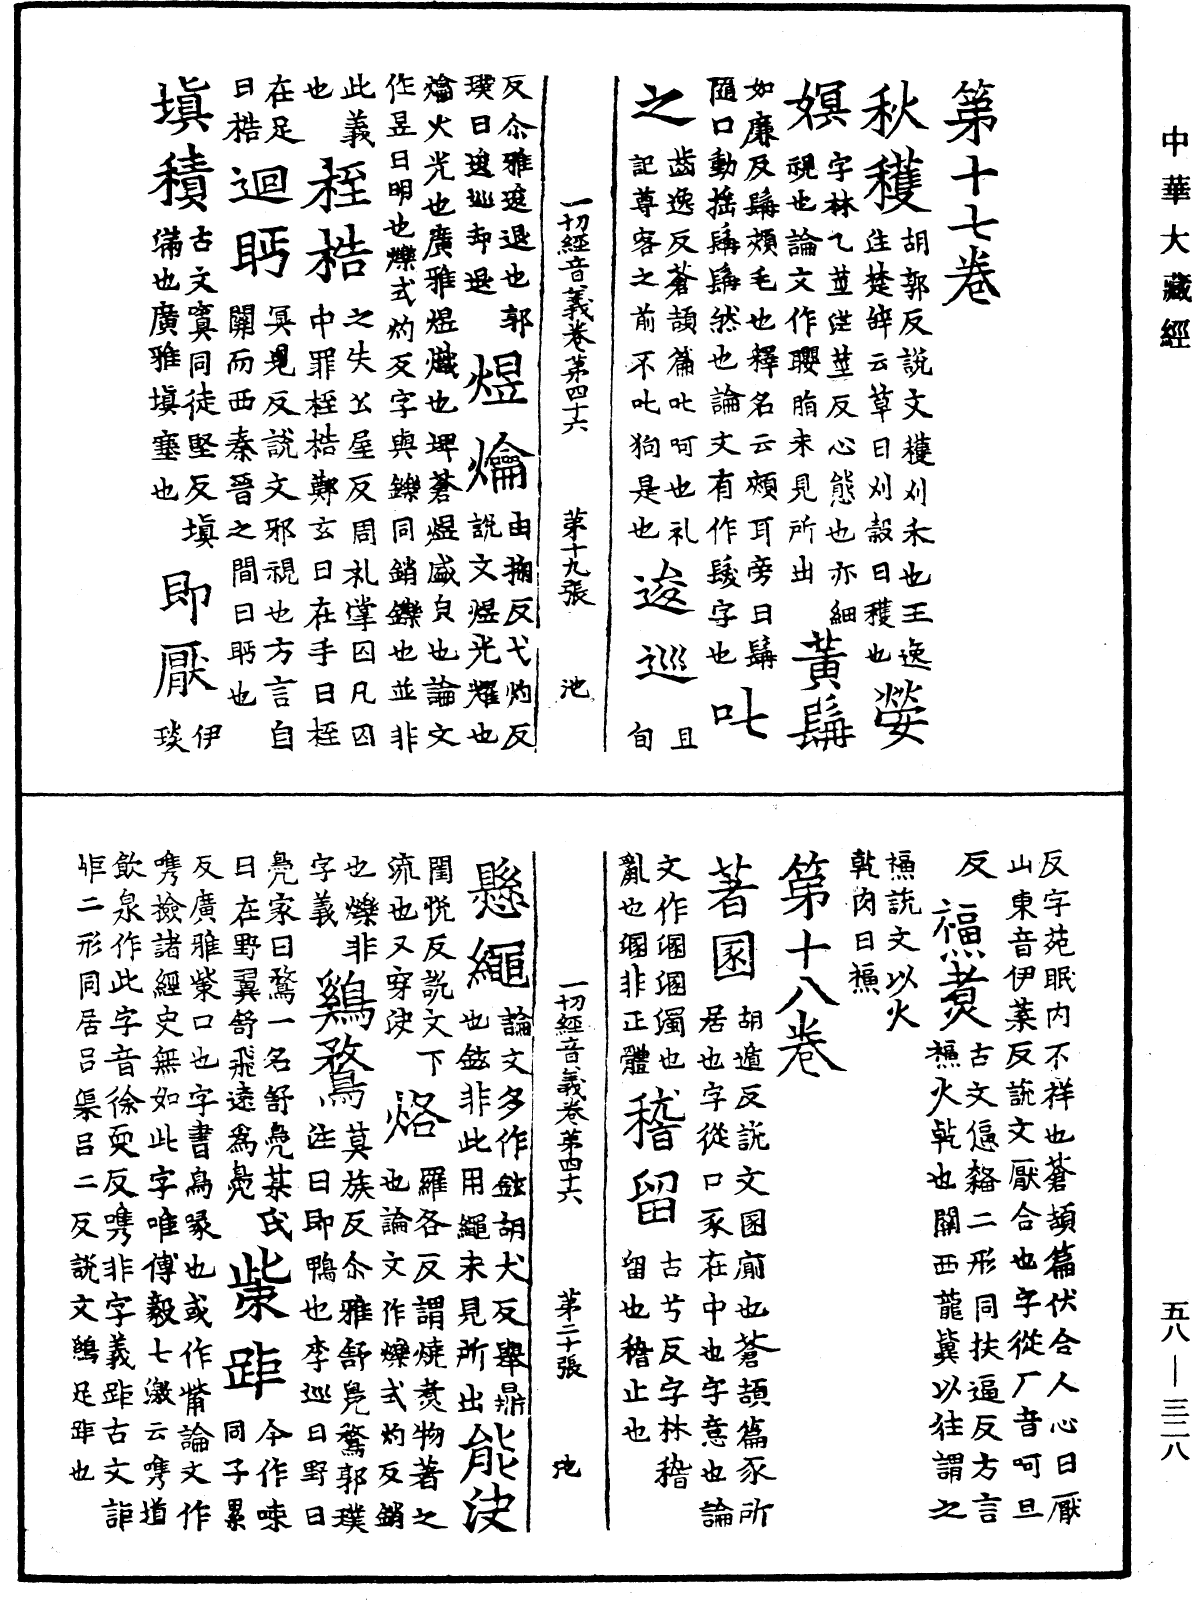 中華大藏經
第十七卷
秋穫 胡郭反說文穫刈禾也王逸注楚辭云草曰刈穀曰穫也 㜲
嫇 字林乙莖莖反心態也亦細視也論文作䁝䀣未見所出 黃髯
如廉反髯頰毛也釋名云頰耳旁曰髯隨口動搖髯髯然也論文有作髮字也 叱
之 齒逸反蒼頡篇叱呵也礼記尊客之前不叱狗是也 逡巡 且旬
一切經音義卷第四十六 第十九張 池
反尒雅逡退也郭璞曰逡巡却退 煜爚 由掬反弋灼反說文煜光耀也
爚火光也廣雅煜熾也埤蒼煜盛皃也論文作昱日明也爍式灼反字與鑠同銷鑠也並非
此義也 桎梏 之失公屋反周礼掌囚凡囚中罪桎梏鄭玄曰在手曰桎
在足曰梏 迴眄 冥見反說文邪視也方言自關而西秦晉之間曰眄也
填積 古文窴同徒堅反填滿也廣雅填塞也 即厭 伊琰
反字苑眠内不祥也蒼頡篇伏合人心曰厭山東音伊葉反說文厭合也字從厂音呵旦
反 𤐧煑 古文㷶𪏭二形同扶逼反方言𤐧火乹也關西隴冀以往謂之
𤐧說文以火乹肉曰𤐧
第十八卷
著圂 胡遁反說文圂廁也蒼頡篇豕所居也字從口豕在中也字意也論
文作溷溷濁也亂也溷非正體 稽留 古兮反字林稽留也稽止也
一切經音義卷第四十六 第二十張 池
懸繩 論文多作鉉胡犬反舉鼎也鉉非此用繩未見所出 能決
閏悅反說文下流也又穿決 烙 羅各反謂燒煑物著之也論文作爍式灼反銷
也爍非字義 鷄鶩 莫族反尒雅舒鳧鶩郭璞注曰即鴨也李巡曰野曰
鳧家曰鶩一名舒鳧某氏曰在野翼舒飛遠爲鳧 㭰距 今作㖢同子累
反廣雅㭰口也字書鳥喙也或作觜論文作嘴撿諸經史無如此字唯傅毅七激云嘴道
飲泉作此字音徐奭反嘴非字義距古文詎㠪二形同居呂渠呂二反說文鷄足距也
五八—三二八